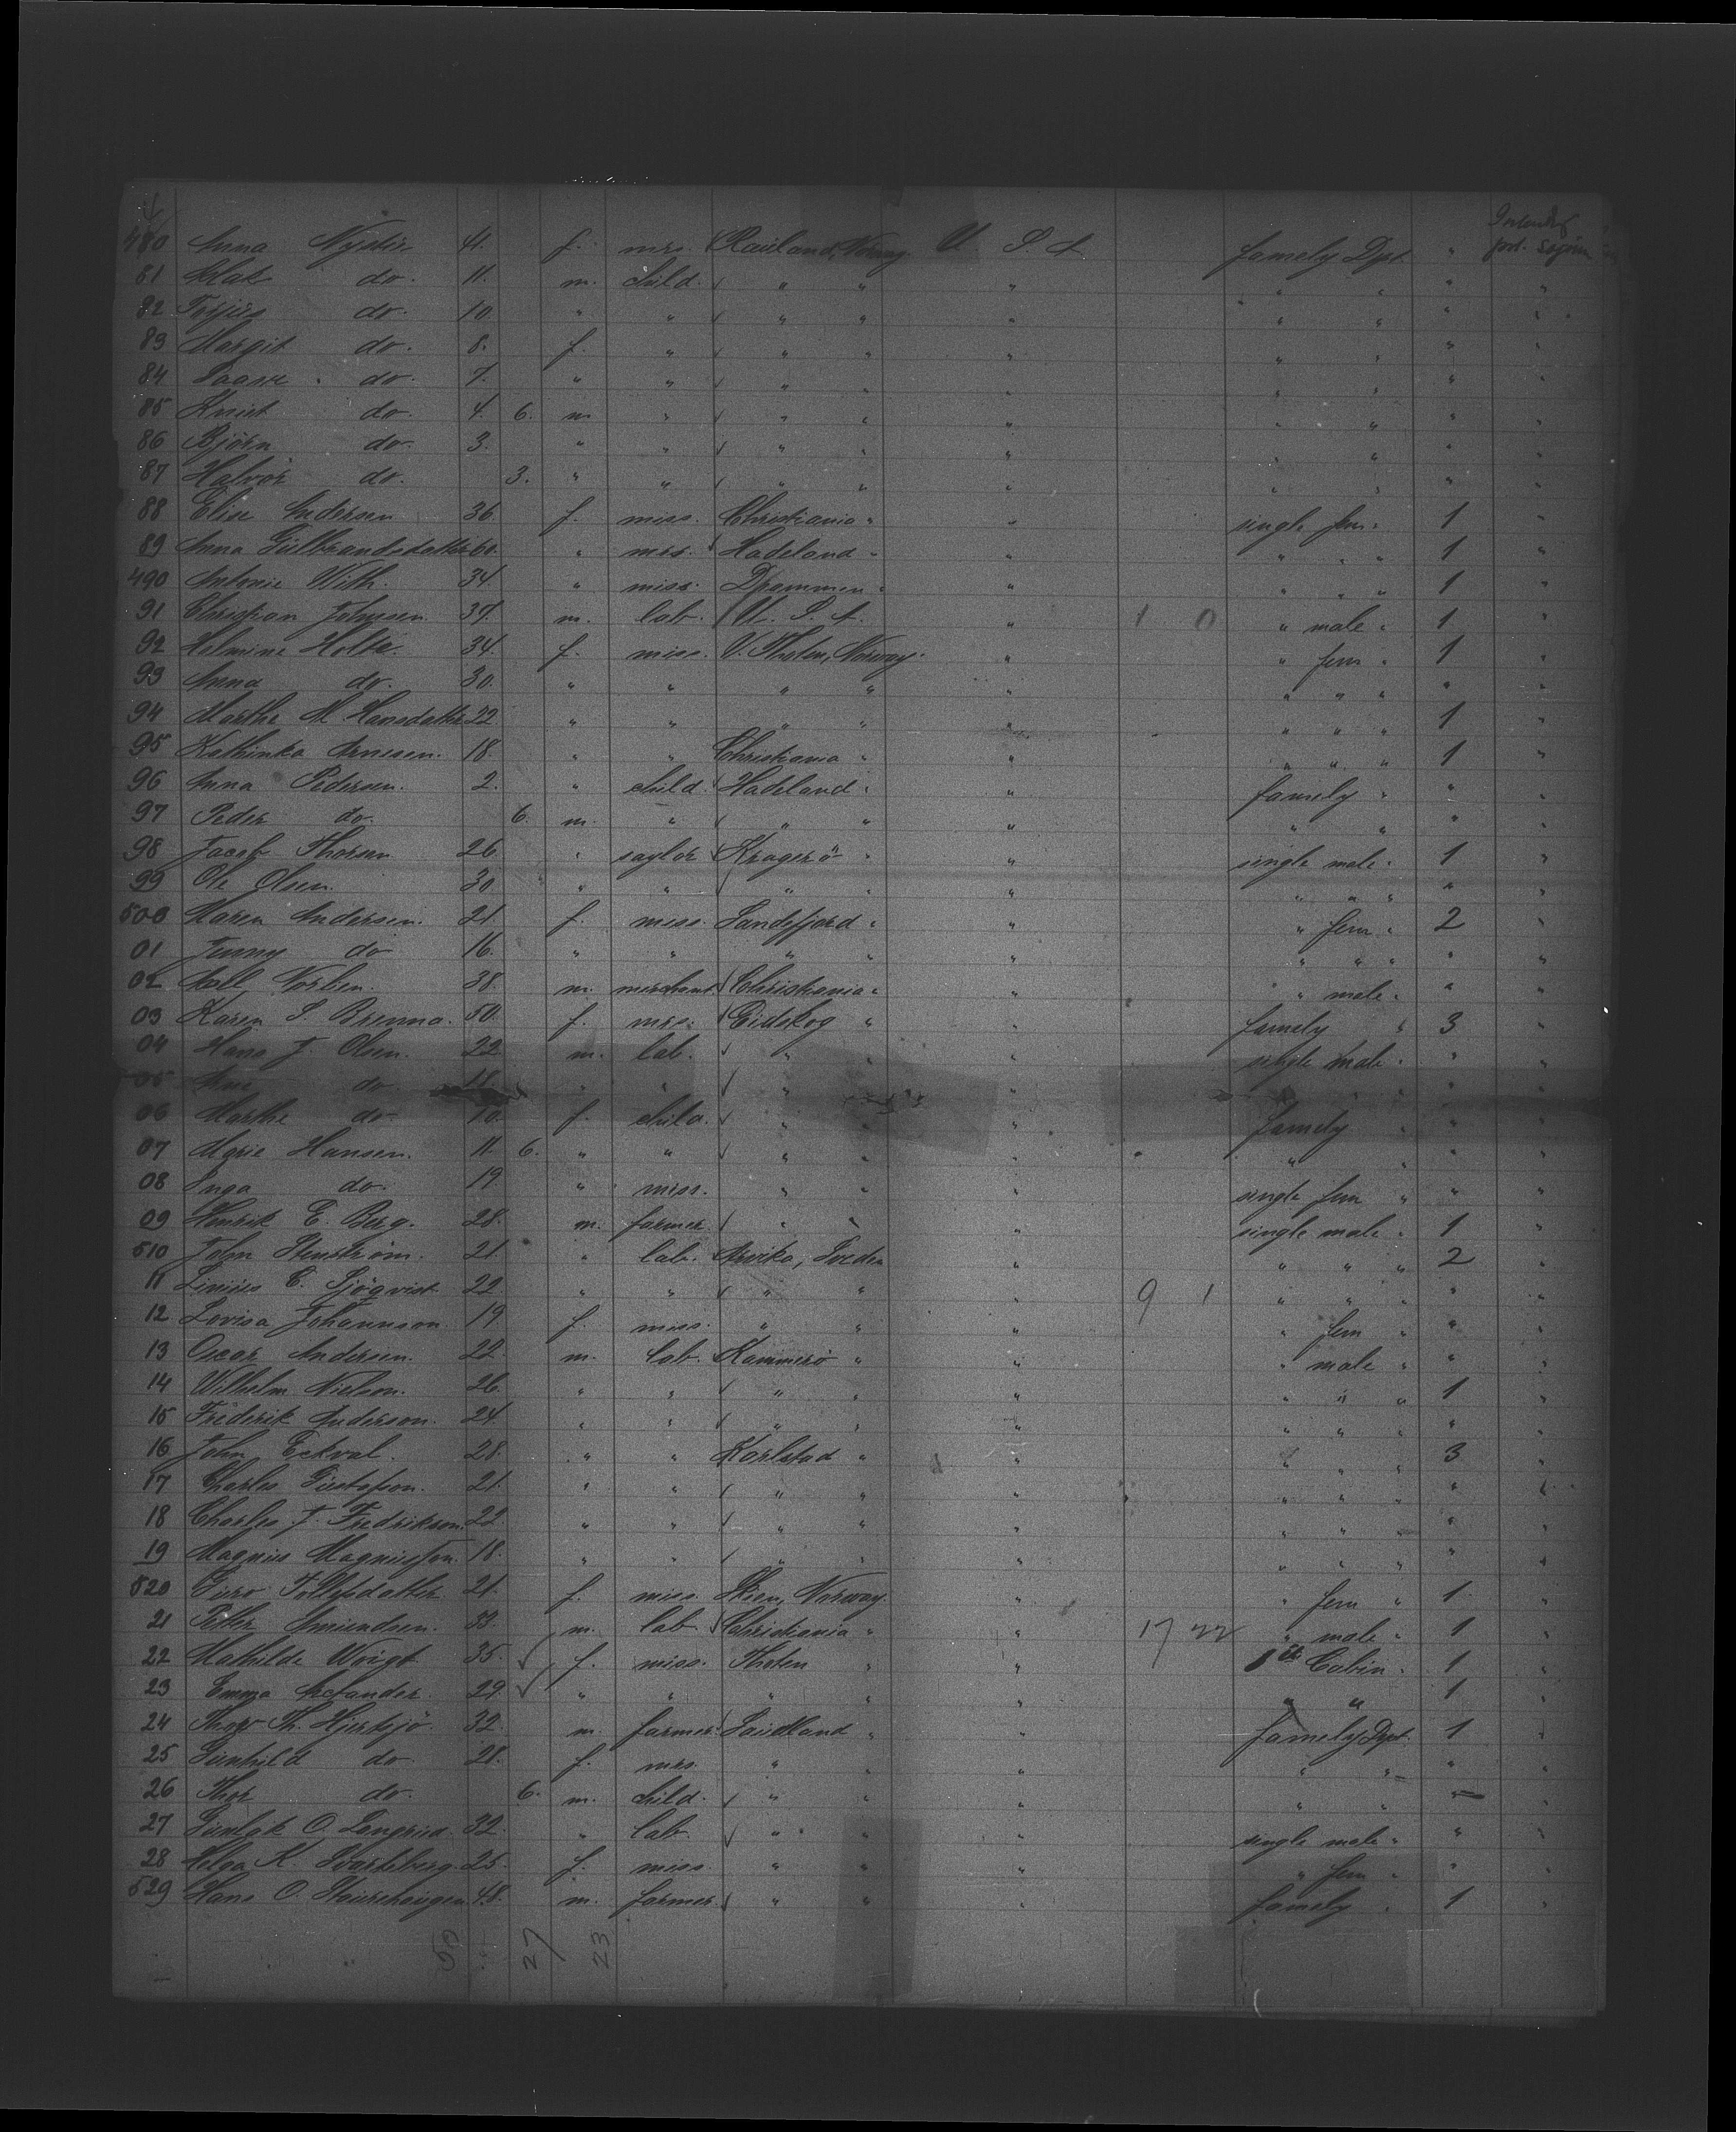 480 Anna 41. f. mrs. Norway U. S. A. famely Dpt. "
81 do. 11. m. child. " " " " " "
82 do. 10 " " " " " " " "
83 Margit do. 8. f. " " " " " " "
84 do. 7. " " " " " " " "
85 Knut do. 4. 6. m " " " " " " "
86 Björn do. 3. " " " " " " " "
87 Halvor do. 3. " " " " " " " "
88 Elise Andersen 36. f. miss. Christiania " " single fem. " 1 "
89 Anna Gulbrandsdatter 60. " mrs. Hadeland " " " " " 1 "
490 Antonie With. 34. " miss. Drammen " " " " " 1 "
91 Christian Johnsen 37. m. lab. U. S. A. " 1 0 " male " 1 "
92 Helmine Holte. 34. f. miss. V. Thoten, Norway. " " fem " 1 "
93 Anna do. 30. " " " " " " " " " "
94 Marthe M. Hansdatter 22 " " " " " " " " 1 "
95 Kathinka Arnesen. 18. " " Christiania " " " " " 1 "
96 Anna Pedersen. 2. " child. Hadeland " " famely " " "
97 Peder do. 6. m. " " " " " " " "
98 Jacob Thorsen 26 " saylor Kragerö " " single male " 1 "
99 Ole Olsen. 30 " " " " " " " " " "
500 Maren Andersen. 21 f. miss. Sandefjord " " " fem " 2 "
01 Jenny do 16. " " " " " " " " " "
02 38. m. merchant. Christiania " " " male " " "
03 Karen S. Brenna. 50. f. mrs. Eidskog " " famely " 3 "
04 Hans J. Olsen. 22 m. lab. " " " single male " " "
05 do. 18. " " " " " " "
06 Marthe do 10. f. child. " " " famely " " "
07 Marie Hansen. 11. 6. " " " " " " " " "
08 Inga do. 19 " miss. " " " single fem " " "
09 Henrik E. Berg. 28. m. farmer. " " " single male " 1 "
510 John Stenström. 21. " lab. Arvika, Sveden " " " " 2 "
11 Linus C. Sjöqvist 22 " " " " " 9 1 " " " " "
12 Lovisa Johannson. 19 f. miss. " " " " fem " " "
13 Oscar Andersen. 22. m. lab. " " " male " " "
14 Wilhelm Nielson. 26. " " " " " " " " 1 "
15 Frederik Anderson. 24. " " " " " " " " " "
16 John Eckval. 28. " " Karlstad " " " " " 3 "
17 Charles Gustafson. 21. " " " " " " " " " "
18 Charles J. Fredrikson. 22. " " " " " " " " " "
19 Magnus Magnusson. 18. " " " " " " " " " "
520 21. f. miss. Skien, Norway. " " fem " 1 "
21 Petter Amundsen. 53. m. lab. Christiania " " 17 22 " male " 1 "
22 Mathilde Woigt 35. f. miss. Thoten " " 1st Cabin " 1 "
23 Emma 29 " " " " " " " 1 "
24 Th. Hjertsjö. 32. m. farmer. " " famely Dpt. 1 "
25 Gunhild do 28. f. mrs. " " " " " " "
26 Thor do. 6. m. child. " " " " " "
27 Gunlak O. 32. " lab. " " " single male " " "
28 Helga K. Svartberg. 25. f. miss " " " " fem " " "
529 Hans O. 48. m. farmer. " " " famely " 1 "
50 27 23